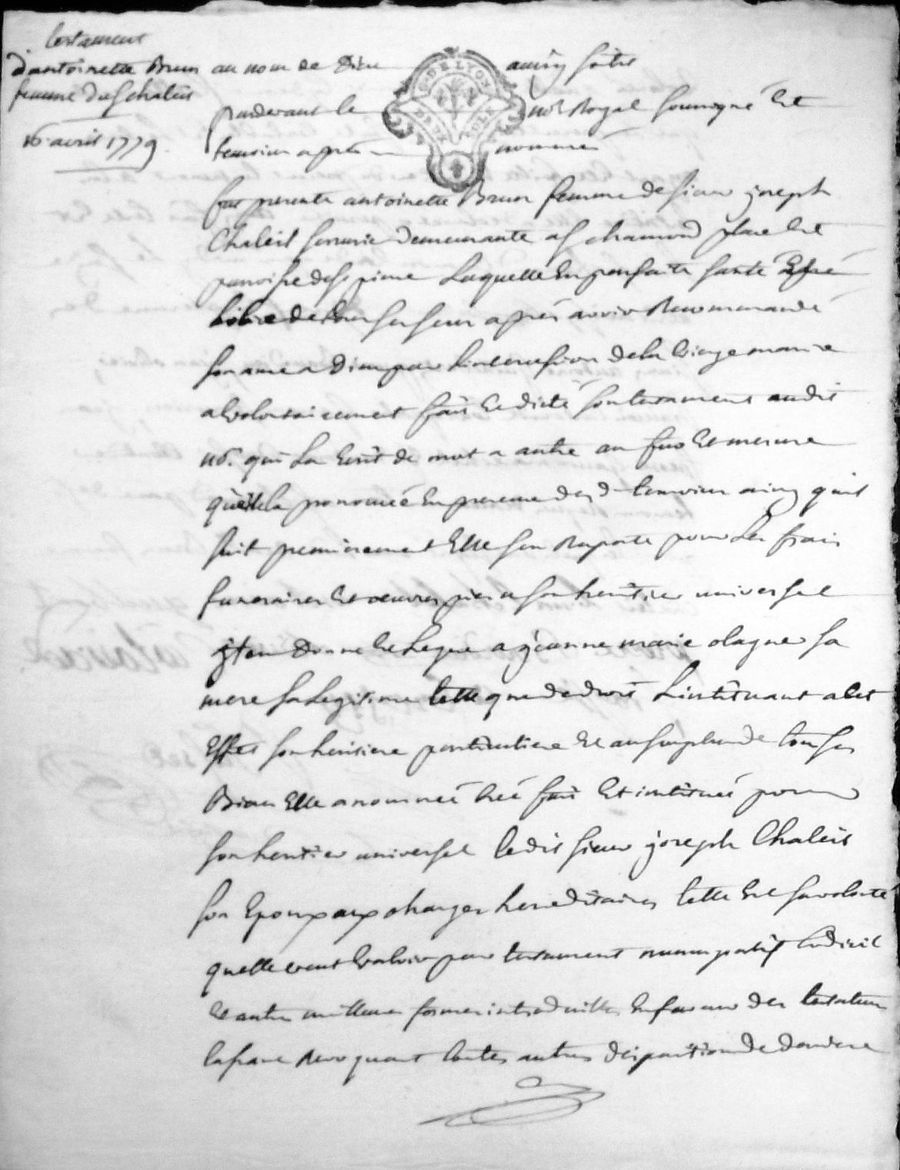 testament
d'antoinette Brun
femme du S chaleis
16 avril 1779
au nom de Dieu amen soit
pardevant le no.re Royal soussigné Et
temoins apres nommés
G. DE LYON
DEUX SOLS
fut presente antoinette Brun femme de sieur joseph
Chaleis serrurie demeurante a S chamond place Et
paroisse de S pierre Laquelle En parfaite santé
Libre de tous ses sens apres avoir Recommandé
son ame a Dieu par L'intercession de la Vierge marie
a volontairement fait Et dicté son testament audit
no.re qui La Ecrit de mot a autre au fur Et mesure
quelle la prononcé En presence des d temoins ainsy quil
suit premierement Elle sen Raporte pour Les frais
funeraires Et oeuvres pies a son heritier universel
jtem Donne Et Legue a jeanne marie olagner sa
mere sa Legitime telle que de droit L'instituant a cet
Effet son heritiere particuliere Et au surplus de tous ses
Biens Elle a nommée Créé fait Et instituée pour
son heritier universel ledit sieur joseph Chaleis
son Epoux aux charges hereditaires telle Est sa volonté
quelle veut Valoir par testament nuncupatif Codicil
Et autre meilleure forme introduitte En faveur des testateurs
Revoquant toutes autres dispositions de derniere